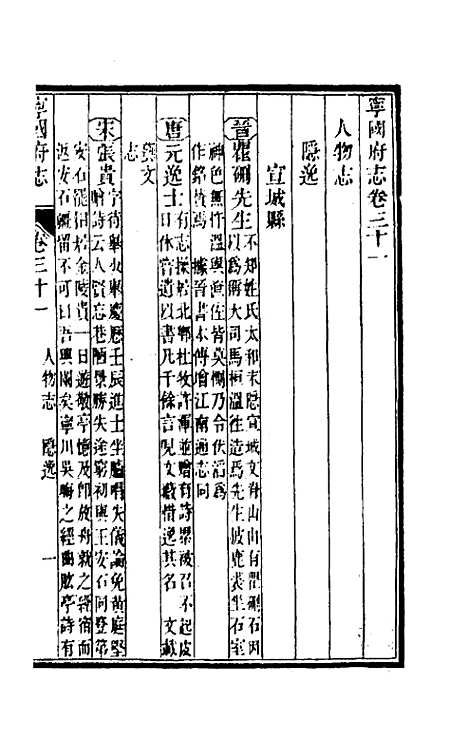 寧國府志卷三十一
人物志
隱逸
宣城縣
晉瞿硎先生不知姓氏太和末隱宣城文脊山山有瞿硎石因
以爲稱大司馬桓溫往造焉先生被鹿裘坐石室
神色無忤溫與僚佐皆莫測乃令伏滔爲
作銘贊焉 據晉書本傳增江南通志同
唐元逸士有志操於北郸杜牧許渾並贈有詩累被召不起皮
日休嘗遺以書几千餘言見文藪惜逸其名 文載
藝文
志
宋張賁字待舉慶曆壬辰進士坐臚唱失儀論免黄庭堅
贈詩云人賢忘巷陋景勝失途窮初與王安石同登第
安石罷相居金陵賁一日遊敬亭憶及即放舟就之容宿而
返安石疆留不可曰吾興闌矣寧川吳晦之經幽眩亭詩有
寧國府志
卷三十一
人物志 隱逸
一